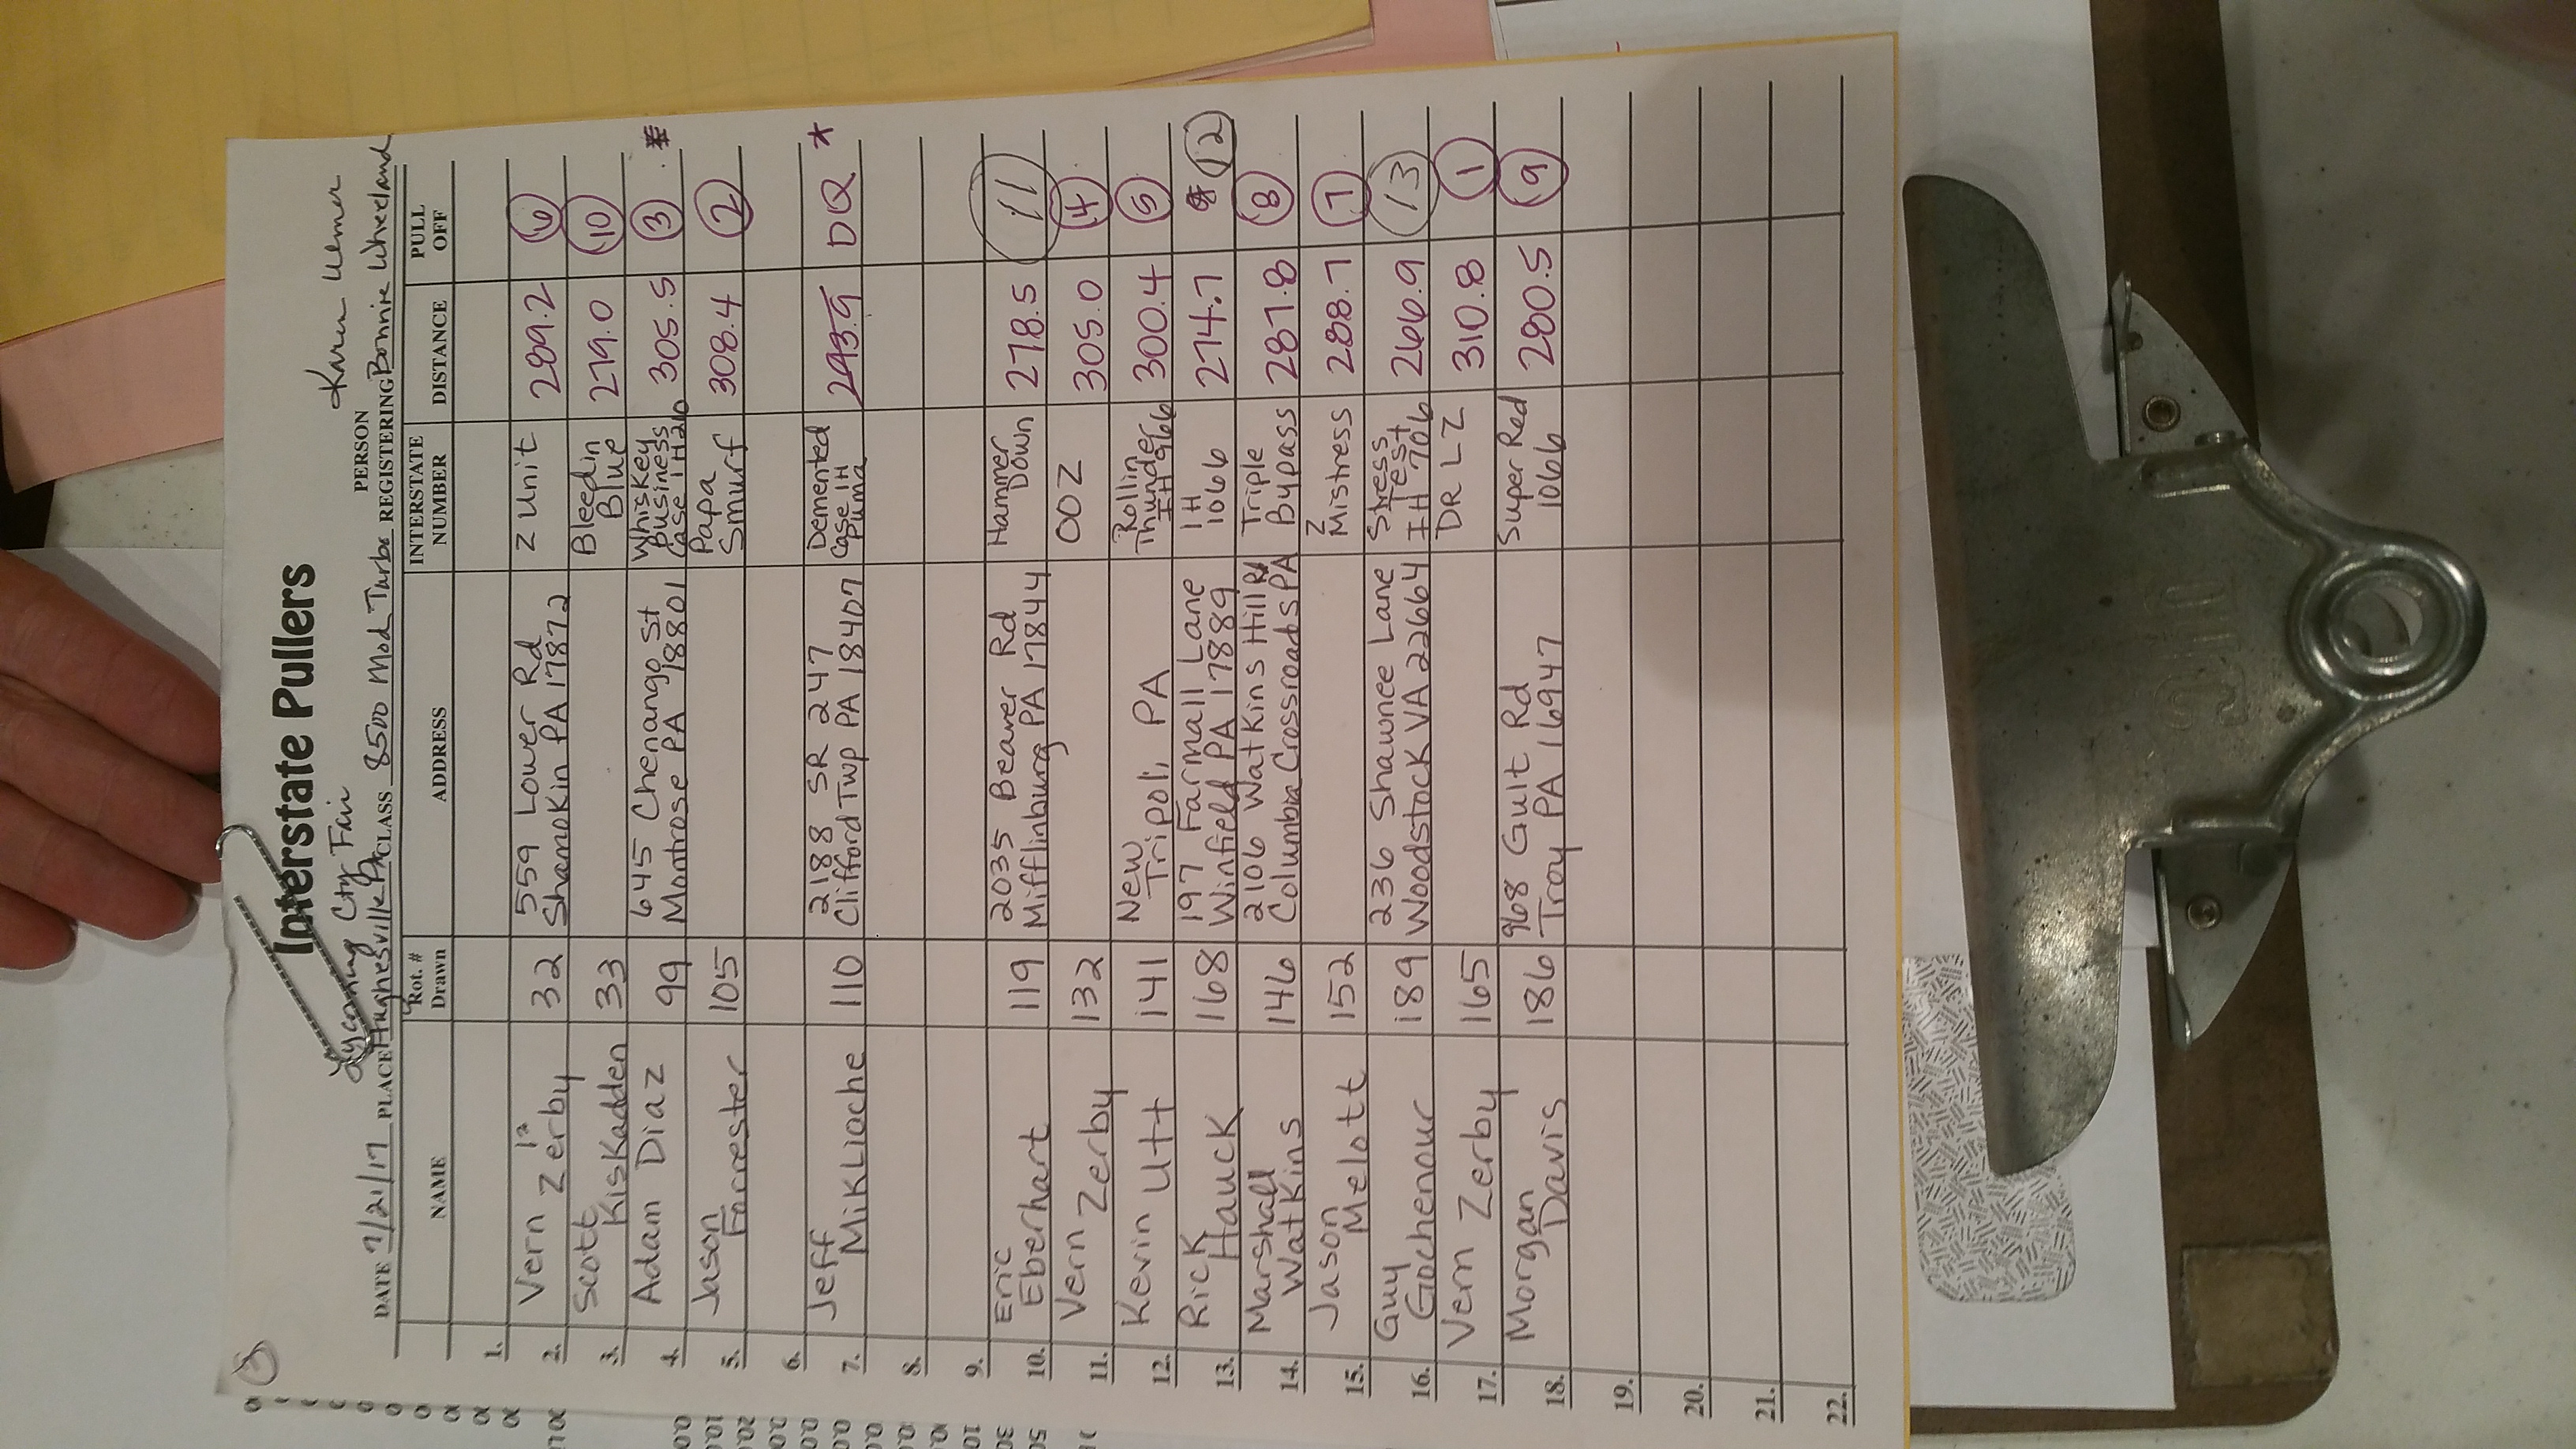 3
Interstate Pullers
Karen Ulmer
Lycoming Cty Fair
PERSON
DATE 7/21/17 PLACE Hughesville PA CLASS 8500 Mod Turbo REGISTERING Bonnie Wheeland
NAME Rot. # Drawn ADDRESS INTERSTATE NUMBER DISTANCE PULL OFF
1.
2. Vern Zerby 32 559 Lower Rd Z Unit 289.2 6
Shamokin PA 17872
3. Scott Kiskadden 33 Bleedin Blue 279.0 10
4. Adam Diaz 99 645 Chenango St Whiskey Business 305.5 3 *
Montrose PA 18801 Case IH 210
5. Jason Forrester 105 Papa Smurf 308.4 2
6.
7. Jeff Mikklioche 110 2188 SR 247 Demented 293.9 DQ *
Clifford Twp PA 18407 Case IH Puma
8.
9.
10. Eric Eberhart 119 2035 Beaver Rd Hammer Down 278.5 11
Mifflinburg PA 17844
11. Vern Zerby 132 OOZ 305.0 4
12. Kevin Utt 141 New Tripoli, PA Rollin Thunder IH 966 300.4 5
13. Rick Hauck 168 197 Farmall Lane IH 1066 274.7 12
Winfield PA 17889
14. Marshall Watkins 146 2106 Watkins Hill Rd Triple Bypass 287.8 8
Columbia Crossroads PA
15. Jason Melott 152 Z Mistress 288.7 7
16. Guy Gochenour 189 236 Shawnee Lane Stress Test IH 706 266.9 13
Woodstock VA 22664
17. Vern Zerby 165 DR LZ 310.8 1
18. Morgan Davis 186 968 Gult Rd Super Red 1066 280.5 9
Troy PA 16947
19.
20.
21.
22.